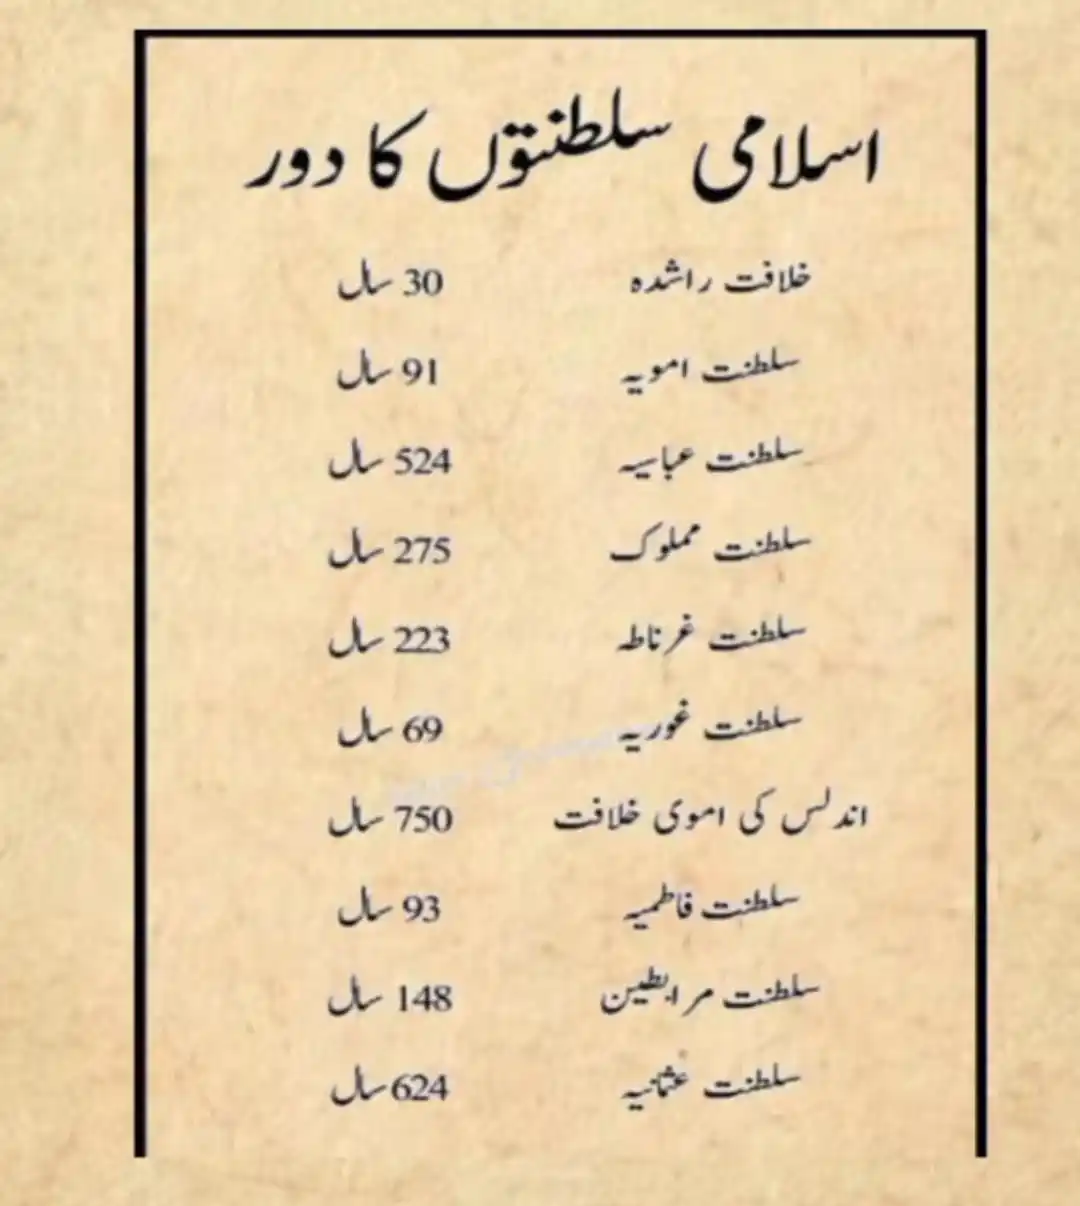 اسلامی سلطنتوں کا دور
خلافت راشدہ 30 سال
سلطنت امویہ 91 سال
سلطنت عباسیہ 524 سال
سلطنت مملوک 275 سال
سلطنت غرناطہ 223 سال
سلطنت غوریہ 69 سال
اندلس کی اموی خلافت 750 سال
سلطنت فاطمیہ 93 سال
سلطنت مرابطین 148 سال
سلطنت عثمانیہ 624 سال